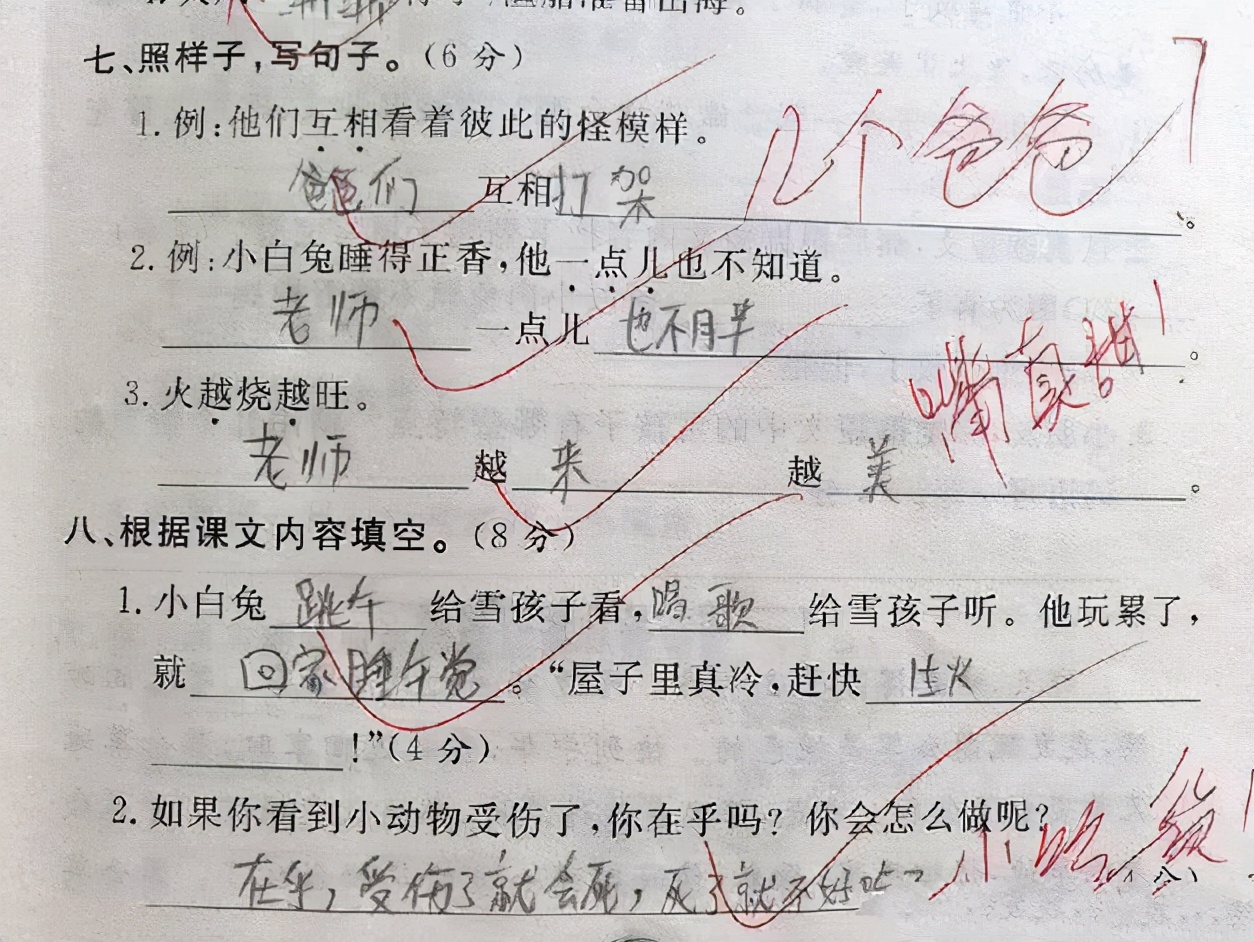 准备出海。
七、照样子,写句子。(6分)
1. 例:他们互相看着彼此的怪模样。
2个爸爸
爸爸们 互相打架。
2. 例:小白兔睡得正香,他一点儿也不知道。
老师 一点儿也不胖。
嘴真甜!
3. 火越烧越旺。
老师 越 来 越 美。
八、根据课文内容填空。(8分)
1. 小白兔 跳午 给雪孩子看,唱歌 给雪孩子听。他玩累了,
就 回家睡午觉。“屋子里真冷,赶快 生火
!”(4分)
2. 如果你看到小动物受伤了,你在乎吗?你会怎么做呢?
在乎,受伤了就会死,死了就不好吃了